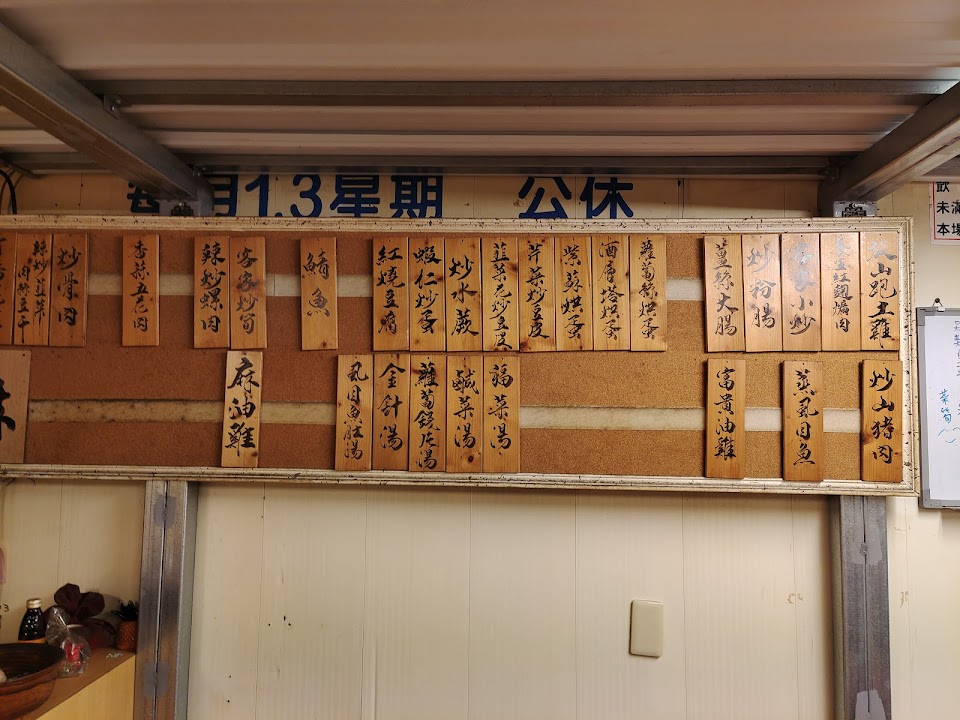 每月1.3星期 公休
飲
未滿
本場
山跑土雞
紅麴
客家小炒
炒粉腸
薑絲大腸
蘿蔔絲烘蛋
層塔烘蛋
紫蘇烘蛋
芹菜炒豆皮
韮菜花炒豆皮
炒水蕨
蝦仁炒蛋
紅燒豆腐
鯖魚
客家炒筍
辣炒螺肉
香蒜五花肉
炒骨肉
辣炒韮菜
肉絲豆干
炒山猪肉
蒸虱目魚
富貴油雞
福菜湯
鹹菜湯
蘿蔔錢湯
金針湯
虱目魚肚湯
麻油雞
菜筍